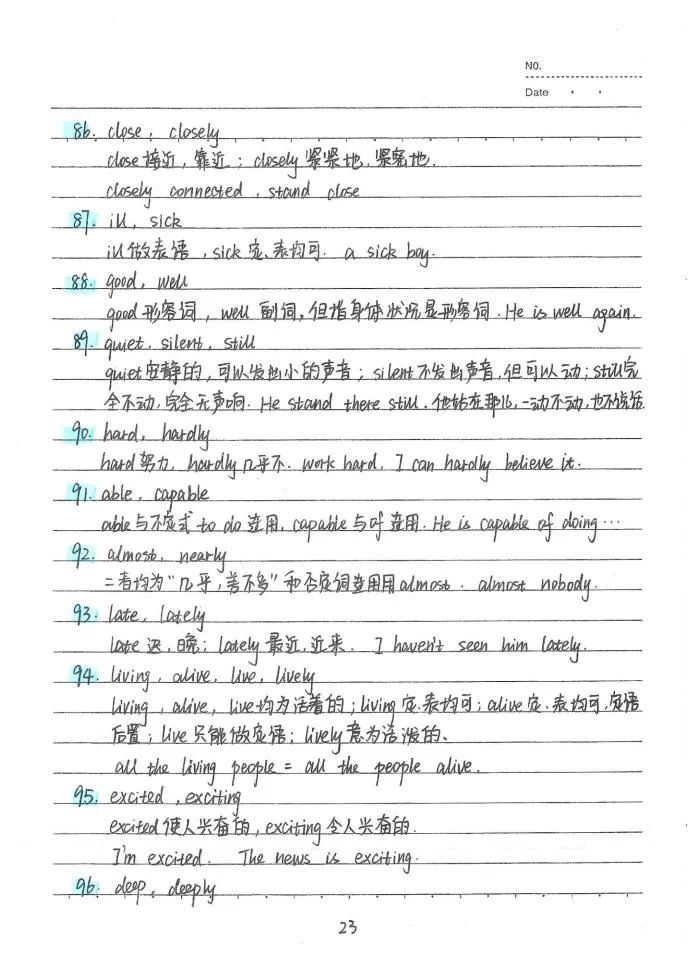 NO.
Date
86. close, closely
close 接近, 靠近; closely 紧紧地, 紧密地.
closely connected, stand close
87. ill, sick
ill 做表语, sick 定、表均可. a sick boy.
88. good, well
good 形容词, well 副词, 但指身体状况是形容词. He is well again.
89. quiet, silent, still
quiet 安静的, 可以发出小的声音; silent 不发出声音, 但可以动; still完
全不动, 完全无声响. He stand there still. 他站在那儿, 一动不动, 也不说话.
90. hard, hardly
hard 努力, hardly 几乎不. work hard, I can hardly believe it.
91. able, capable
able 与不定式 to do 连用, capable 与of 连用. He is capable of doing…
92. almost, nearly
二者均为“几乎, 差不多”和否定词连用用almost. almost nobody.
93. late, lately
late 迟, 晚; lately 最近, 近来. I haven't seen him lately.
94. living, alive, live, lively
living, alive, live 均为活着的; living 定、表均可; alive 定、表均可, 定语
后置; live 只能做定语; lively 意为活泼的.
all the living people = all the people alive.
95. excited, exciting
excited 使人兴奋的, exciting 令人兴奋的.
I'm excited. The news is exciting.
96. deep, deeply
23